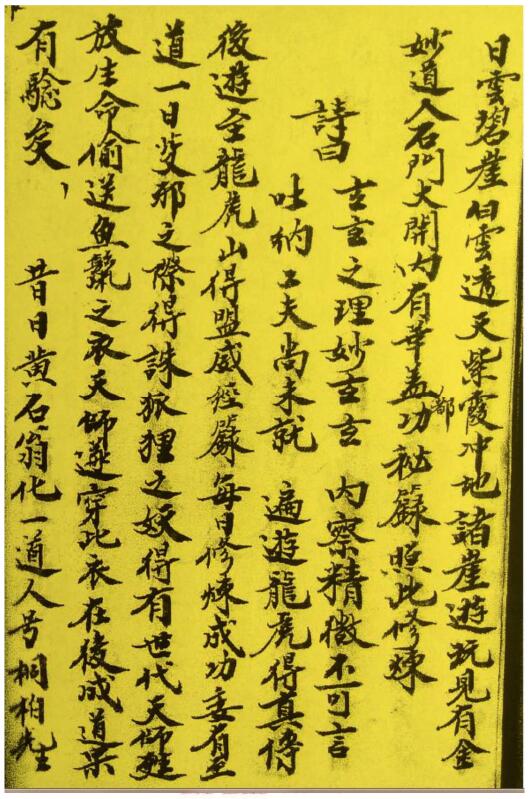 日雲碧崖白雲透天紫霞沖地諸崖遊玩見有金
妙道入石門大開内有華蓋功秘籙照此修煉
都
詩曰
古玄之理妙古玄 内察精微不可言
吐納工夫尚未就 遍遊龍虎得真傳
後遊至龍虎山得盟威經籙每日修煉成功委有至
道一日受邪之際得誅狐狸之妖得有世代天師
放生命偷送魚鱗之衣天師遂穿此衣在後成道果
有驗矣
昔日黄石翁化一道人号桐柏先生